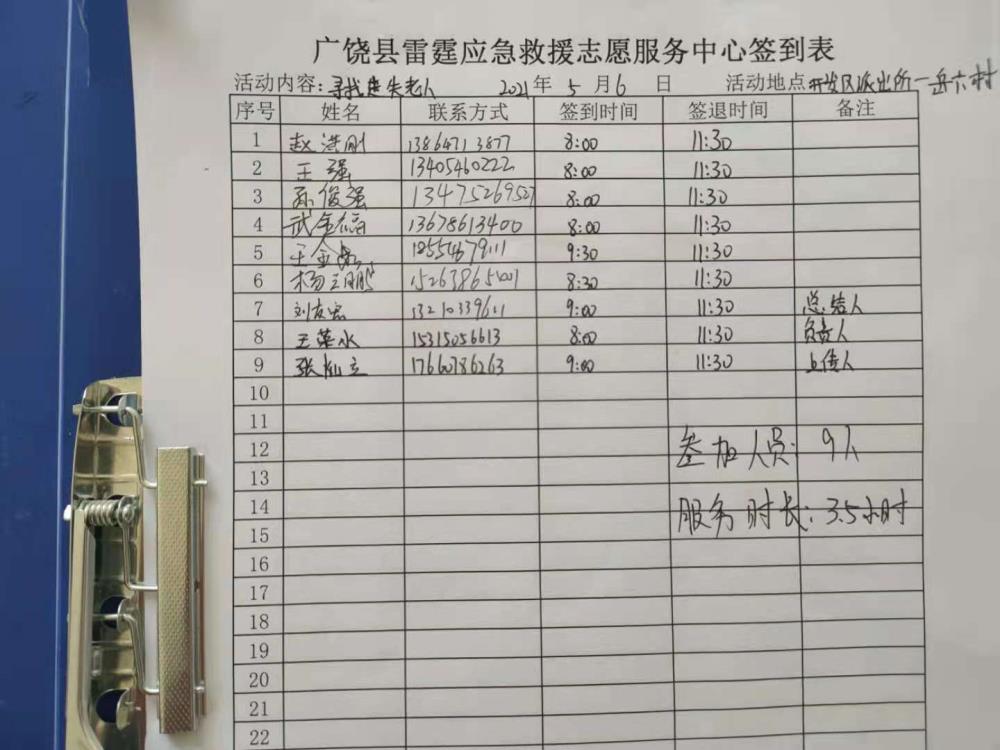 广饶县雷霆应急救援志愿服务中心签到表
活动内容:寻找走失老人 2021年 5 月 6 日 活动地点 开发区派出所一岳六村
序号 姓名 联系方式 签到时间 签退时间 备注
1 赵洪刚 13864713877 8:00 11:30
2 王强 13405460222 8:00 11:30
3 孙俊强 13475269527 8:00 11:30
4 武金磊 13678613400 8:00 11:30
5 王金 9:30 11:30
6 杨立鹏 8:30 11:30
7 刘友宏 9:00 11:30 总结人
8 王荣水 15315056613 8:00 11:30 负责人
9 张 立 17660786263 9:00 11:30 上传人
10
11
12 参加人员: 9人
13
14 服务时长: 3.5小时
15
16
17
18
19
20
21
22